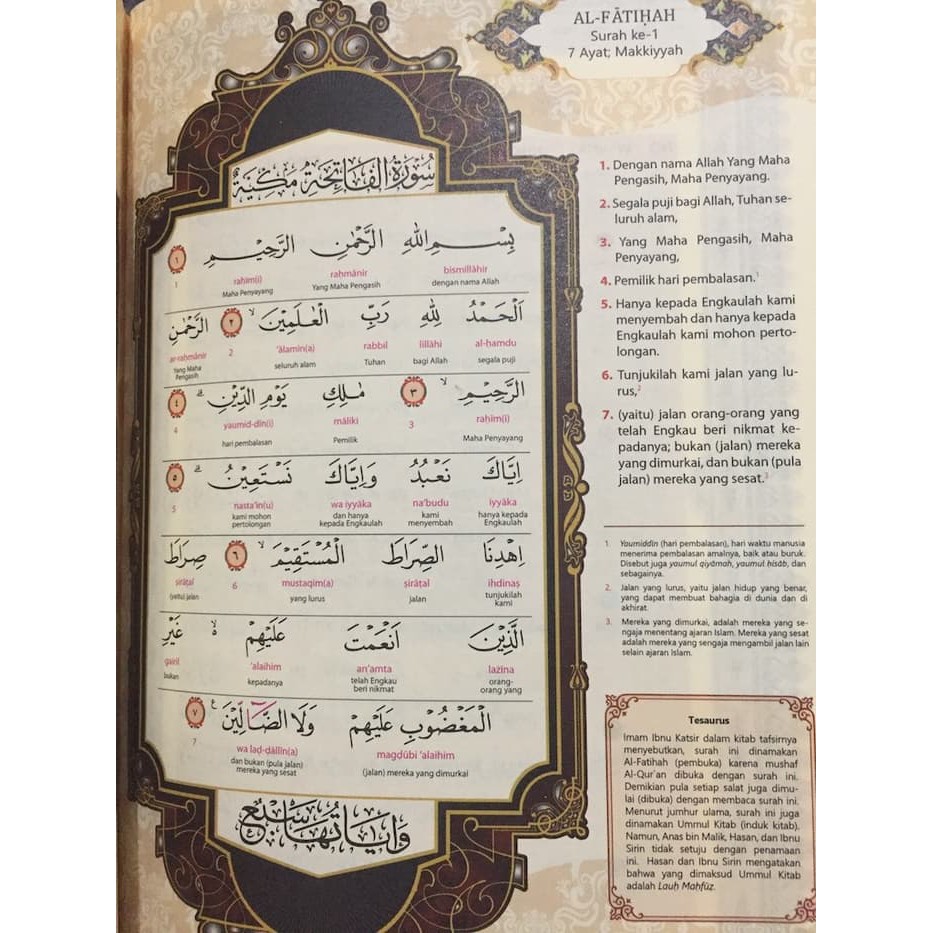 AL-FĀTIḤAH
Surah ke-1
7 Ayat; Makkiyyah
سُوْرَةُ الْفَاتِحَةِ مَكِّيَّةٌ
بِسْمِ اللّٰهِ الرَّحْمٰنِ الرَّحِيْمِ ١
bismillāhir raḥmānir raḥīm(i)
dengan nama Allah Yang Maha Pengasih Maha Penyayang 1
اَلْحَمْدُ لِلّٰهِ رَبِّ الْعٰلَمِيْنَۙ ٢ الرَّحْمٰنِ
al-ḥamdu lillāhi rabbil 'ālamīn(a) 2 ar-raḥmānir
segala puji bagi Allah Tuhan seluruh alam Yang Maha
Pengasih
الرَّحِيْمِۙ ٣ مٰلِكِ يَوْمِ الدِّيْنِۗ ٤
raḥīm(i) 3 māliki yaumid-dīn(i) 4
Maha Penyayang Pemilik hari pembalasan
اِيَّاكَ نَعْبُدُ وَاِيَّاكَ نَسْتَعِيْنُۗ ٥
iyyāka na'budu wa iyyāka nasta'īn(u) 5
hanya kepada kami dan hanya kami mohon
Engkaulah menyembah kepada Engkaulah pertolongan
اِهْدِنَا الصِّرَاطَ الْمُسْتَقِيْمَۙ ٦ صِرَاطَ
ihdinaṣ ṣirāṭal mustaqīm(a) 6 ṣirāṭal
tunjukilah jalan yang lurus (yaitu) jalan
kami
الَّذِيْنَ اَنْعَمْتَ عَلَيْهِمْ ۙ غَيْرِ
lażīna an'amta 'alaihim gairil
orang- telah Engkau kepadanya bukan
orang yang beri nikmat
الْمَغْضُوْبِ عَلَيْهِمْ وَلَا الضَّاۤلِّيْنَ ࣖ ٧
magḍūbi 'alaihim wa laḍ-ḍāllīn(a) 7
(jalan) mereka yang dimurkai dan bukan (pula jalan)
mereka yang sesat
وَاٰيَاتُهَا سَبْعٌ
1. Dengan nama Allah Yang Maha
Pengasih, Maha Penyayang.
2. Segala puji bagi Allah, Tuhan se-
luruh alam,
3. Yang Maha Pengasih, Maha
Penyayang,
4. Pemilik hari pembalasan.¹
5. Hanya kepada Engkaulah kami
menyembah dan hanya kepada
Engkaulah kami mohon perto-
longan.
6. Tunjukilah kami jalan yang lu-
rus,²
7. (yaitu) jalan orang-orang yang
telah Engkau beri nikmat ke-
padanya; bukan (jalan) mereka
yang dimurkai, dan bukan (pula
jalan) mereka yang sesat.³
1. Yaumiddīn (hari pembalasan), hari waktu manusia
menerima pembalasan amalnya, baik atau buruk.
Disebut juga yaumul qiyāmah, yaumul ḥisāb, dan
sebagainya.
2. Jalan yang lurus, yaitu jalan hidup yang benar,
yang dapat membuat bahagia di dunia dan di
akhirat.
3. Mereka yang dimurkai, adalah mereka yang se-
ngaja menentang ajaran Islam. Mereka yang sesat
adalah mereka yang sengaja mengambil jalan lain
selain ajaran Islam.
Tesaurus
Imam Ibnu Katsir dalam kitab tafsirnya
menyebutkan, surah ini dinamakan
Al-Fatihah (pembuka) karena mushaf
Al-Qur'an dibuka dengan surah ini.
Demikian pula setiap salat juga dimu-
lai (dibuka) dengan membaca surah ini.
Menurut jumhur ulama, surah ini juga
dinamakan Ummul Kitab (induk kitab).
Namun, Anas bin Malik, Hasan, dan Ibnu
Sirin tidak setuju dengan penamaan
ini. Hasan dan Ibnu Sirin mengatakan
bahwa yang dimaksud Ummul Kitab
adalah Lauḥ Maḥfūẓ.